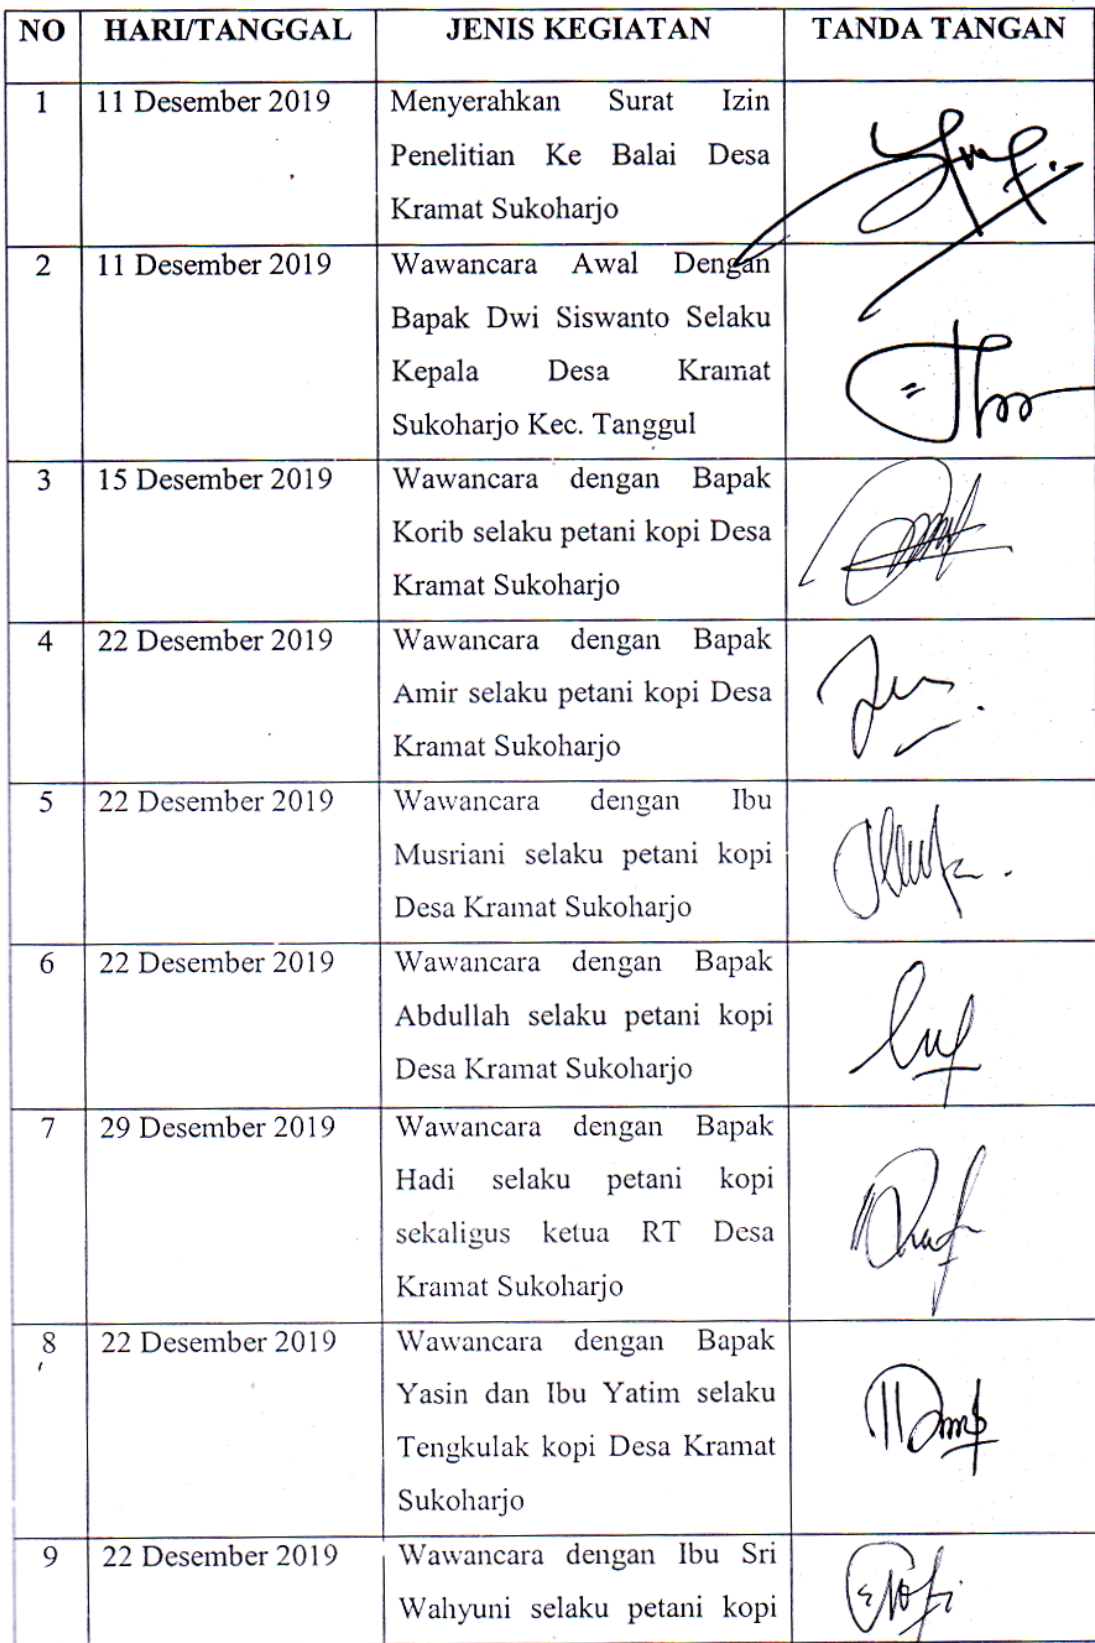 NO HARI/TANGGAL JENIS KEGIATAN TANDA TANGAN
1 11 Desember 2019 Menyerahkan Surat Izin
Penelitian Ke Balai Desa
Kramat Sukoharjo
2 11 Desember 2019 Wawancara Awal Dengan
Bapak Dwi Siswanto Selaku
Kepala Desa Kramat
Sukoharjo Kec. Tanggul
3 15 Desember 2019 Wawancara dengan Bapak
Korib selaku petani kopi Desa
Kramat Sukoharjo
4 22 Desember 2019 Wawancara dengan Bapak
Amir selaku petani kopi Desa
Kramat Sukoharjo
5 22 Desember 2019 Wawancara dengan Ibu
Musriani selaku petani kopi
Desa Kramat Sukoharjo
6 22 Desember 2019 Wawancara dengan Bapak
Abdullah selaku petani kopi
Desa Kramat Sukoharjo
7 29 Desember 2019 Wawancara dengan Bapak
Hadi selaku petani kopi
sekaligus ketua RT Desa
Kramat Sukoharjo
8 22 Desember 2019 Wawancara dengan Bapak
Yasin dan Ibu Yatim selaku
Tengkulak kopi Desa Kramat
Sukoharjo
9 22 Desember 2019 Wawancara dengan Ibu Sri
Wahyuni selaku petani kopi